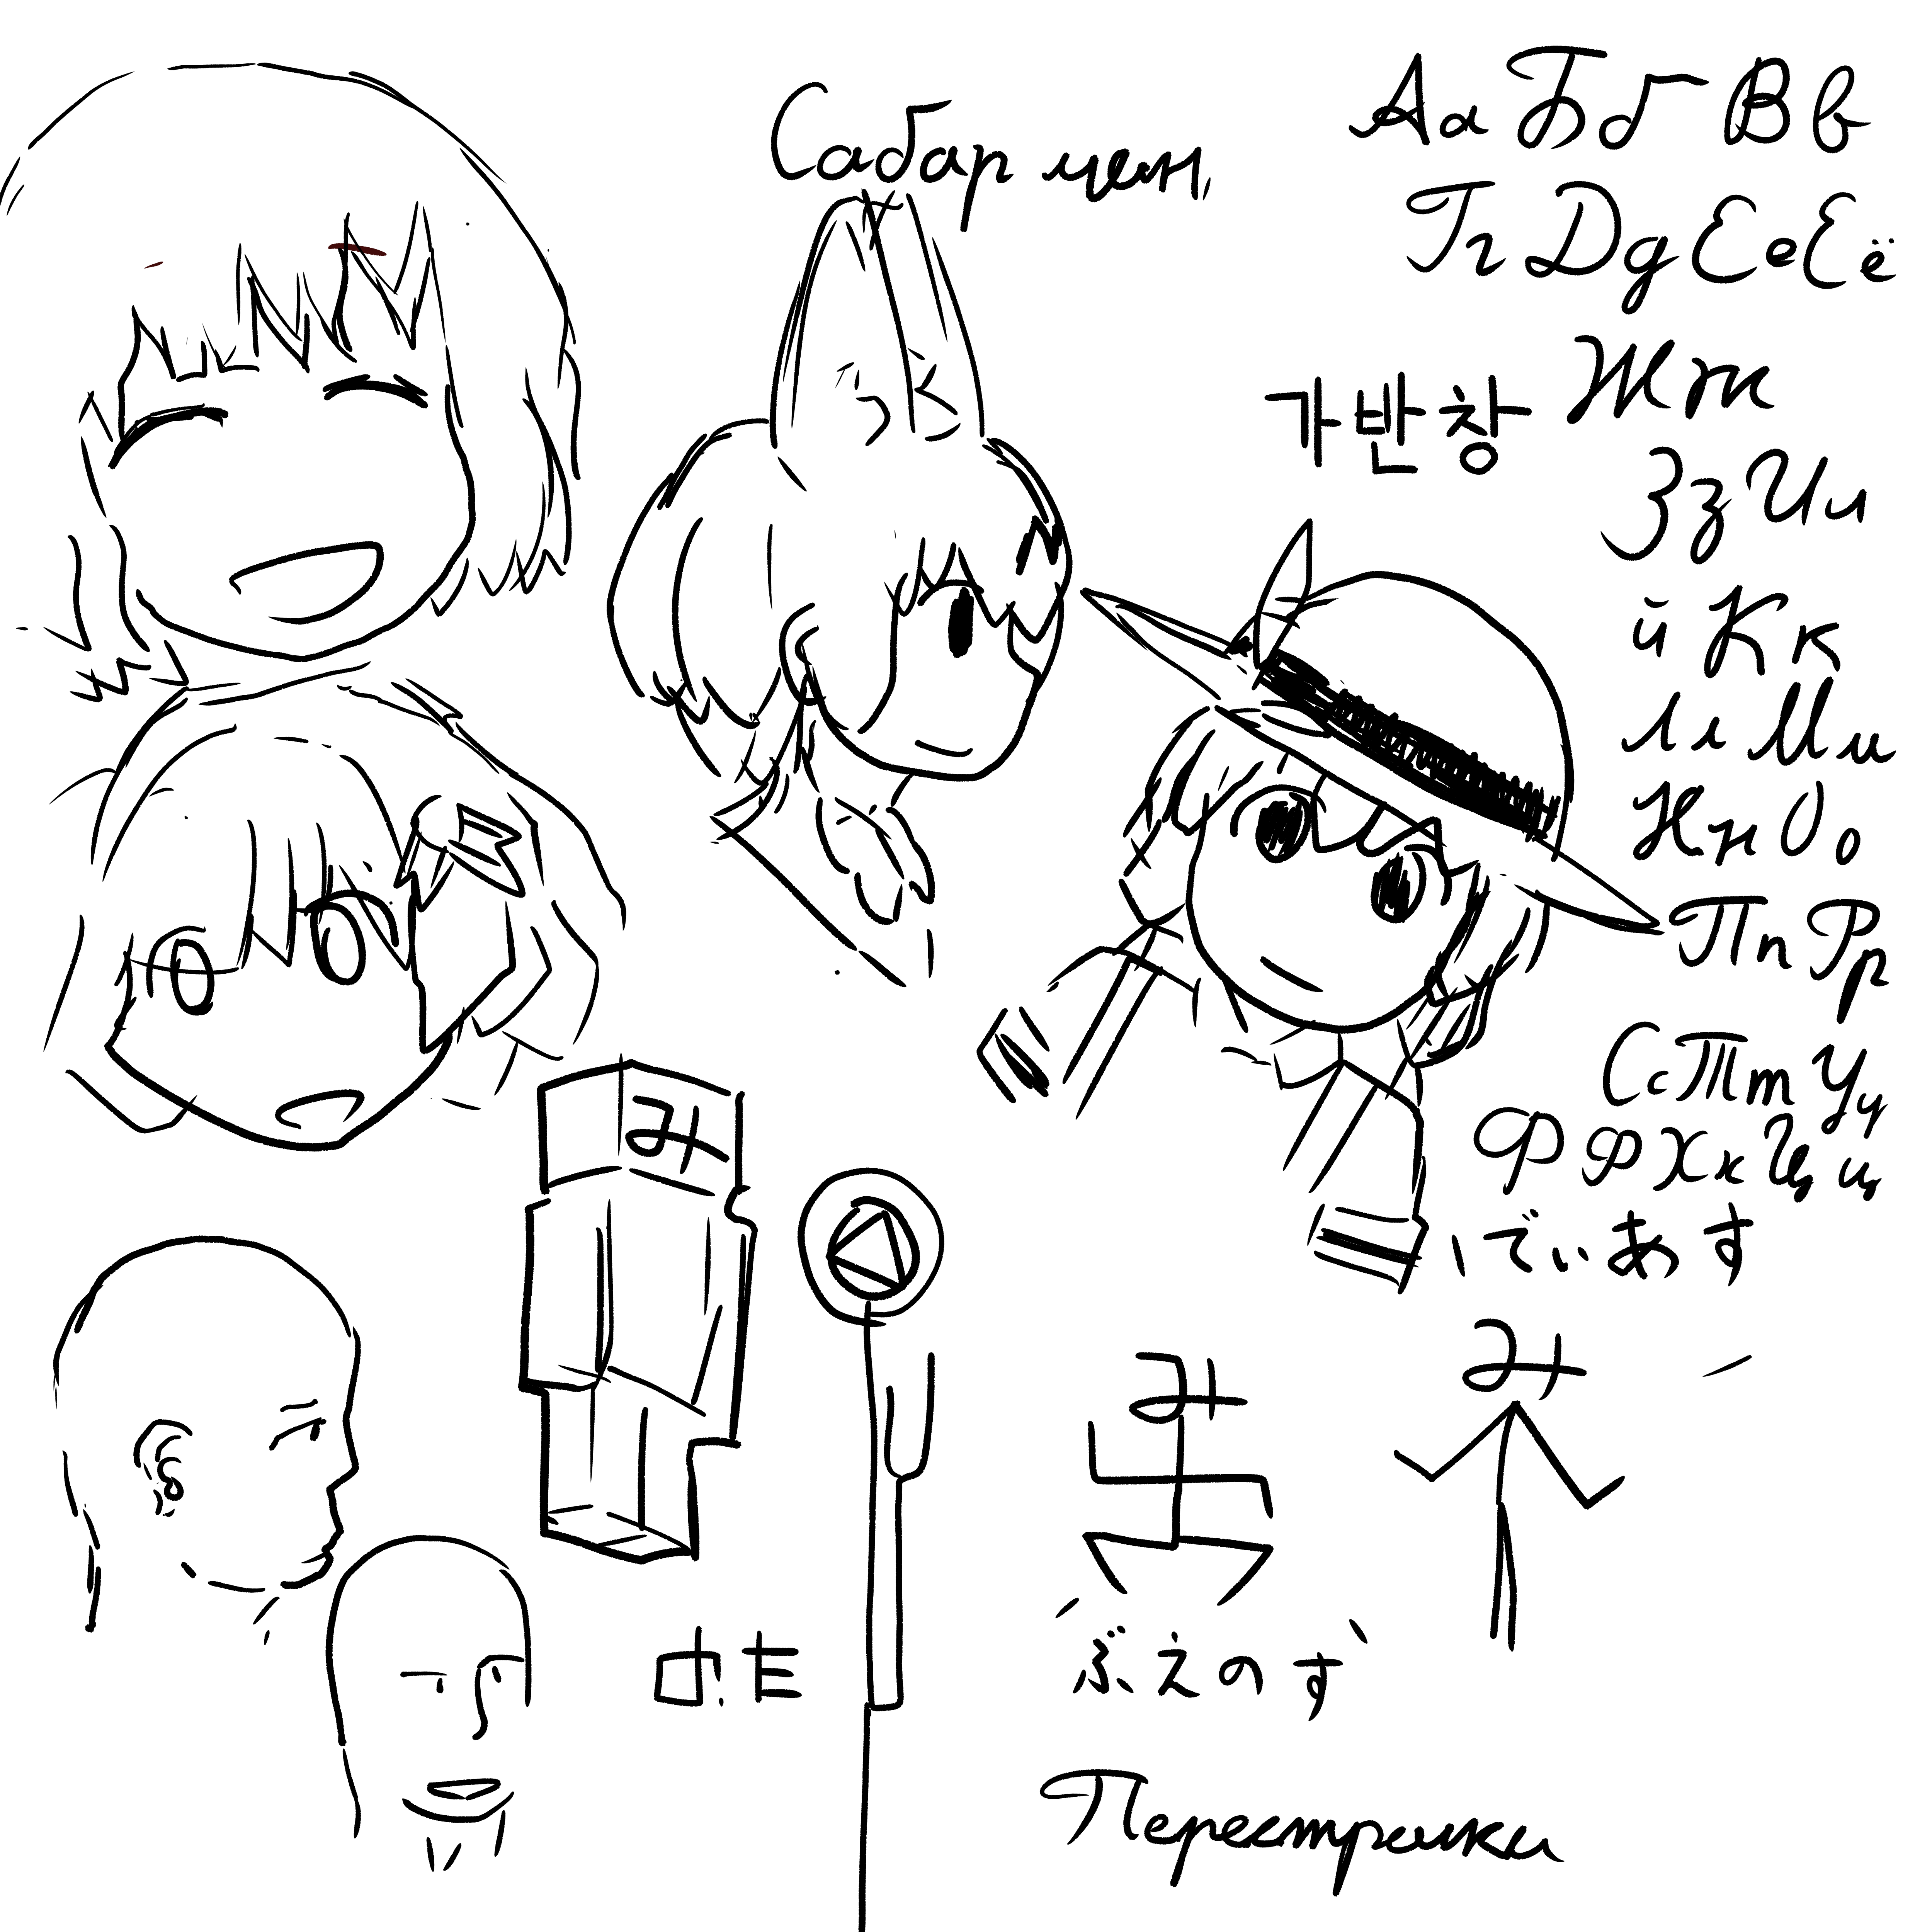 Сабар чет,
Аа Бб Вв
Гг Дд Ее Ёё
Жж
가반장
Зз Ии
й Кк
Лл Мм
Нн Оо
Пп Рр
Сс Тт Уу
Фф Хх Цц
み
でぃあす
み
み
ぶえのす